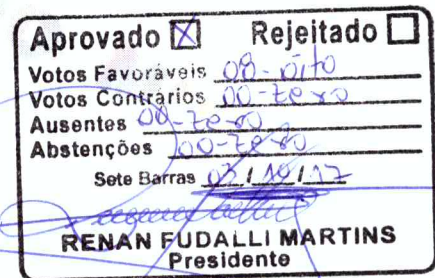 Aprovado ☒ Rejeitado ☐
Votos Favoráveis 08-oito
Votos Contrários 00-zero
Ausentes 00-zero
Abstenções 00-zero
Sete Barras 03/10/17
RENAN FUDALLI MARTINS
Presidente